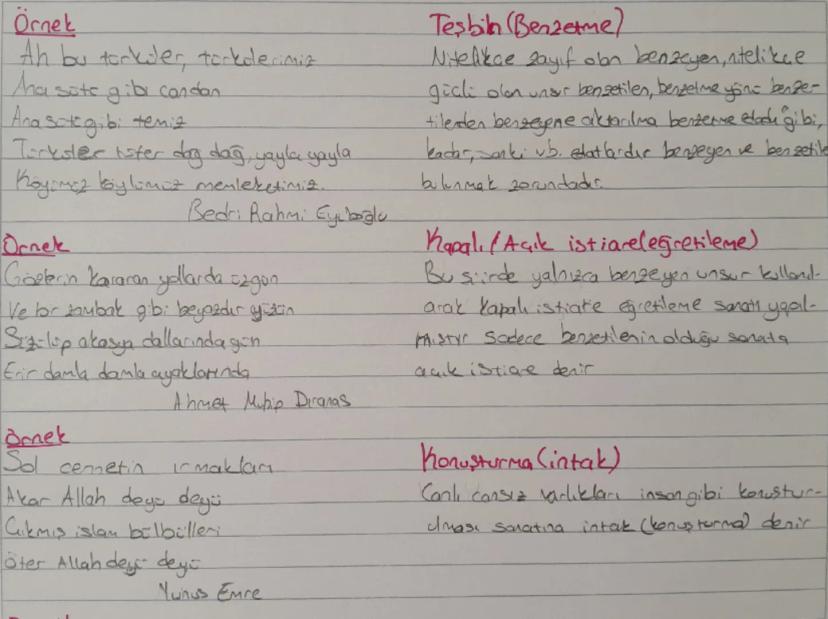 Örnek
Ah bu türküler, türkülerimiz
Ana sütü gibi candan
Ana sütü gibi temiz
Türküler tüter dağ dağ, yayla yayla
Köyümüz köylümüz memleketimiz.
Bedri Rahmi Eyüboğlu
Teşbih (Benzetme)
Nitelikçe zayıf olan benzeyen, nitelikçe
güçlü olan unsur benzetilen, benzetme yönü benze-
tilenden benzeyene aktarılma benzetme edatı gibi,
kadar, sanki vb. edatlardır benzeyen ve benzetilen
bulunmak zorundadır.
Örnek
Gözlerin kararan yollarda üzgün
Ve bir zambak gibi beyazdır yüzün
Süzülüp akasya dallarında gün
Erir damla damla ayaklarında
Ahmet Muhip Dıranas
Kapalı / Açık istiare (eğretileme)
Bu şiirde yalnızca benzeyen unsur kullanıl-
arak kapalı istiare eğretileme sanatı yapıl-
mıştır sadece benzetilenin olduğu sanata
açık istiare denir
Örnek
Şol cennetin ırmakları
Akar Allah deyü deyü
Çıkmış islam bülbülleri
Öter Allah deyü deyü
Yunus Emre
Konuşturma (intak)
Canlı cansız varlıkları insan gibi konuştur-
ulması sanatına intak (konuşturma) denir